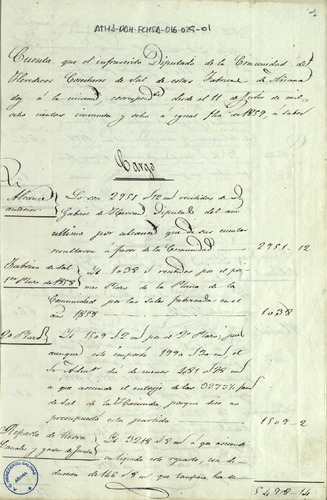 ATHA-DAH-FCHSA-016-029-01
Cuenta que el infrascrito Diputado de la Comunidad de
Herederos Cosecheros de Sal de estas Fabricas de Añana
doy á la misma, correspond.te desde el 11 de Julio de mil
ocho cientos cincuenta y ocho a igual fha de 1859, a saber
Cargo
Alcance
anterior
Lo son 2951 12 m recibidos de D.
Gabino de Herran Diputado del año
ultimo por alcance que de sus cuentas
resultaron á favor de la Comunidad 2951-12
Fabrica de Sal
1er Plazo de 1858
Id 1038 recibidos por el pri
mer Plazo de la Plana de la
Comunidad por las sales fabricadas en el
año 1858 1038
2º Plazo
Id 1509 2 m por el 2º Plazo, pues
aunque este importe 1990 20 m el
Sr Adm.or dio de menos 481 18 m
á que asciende el entrojo de las 3273 ½ fan.s
de sal de la Hacienda porque dice no
presupuesta esta partida 1509-2
Reparto de
Canales y gastos de Junta
Id 3218 8 m a que asciende
el liquido este reparto, con de
duccion de 146 8 m que
5498-14